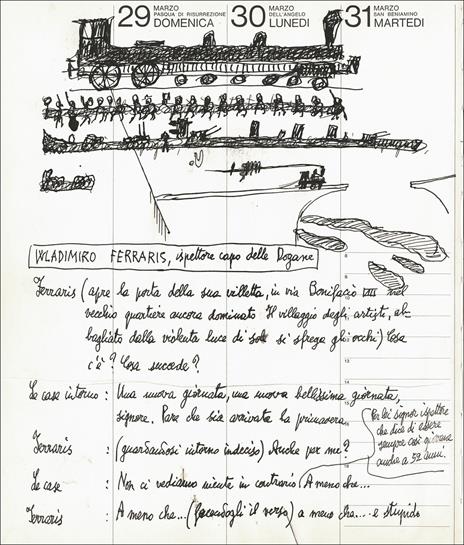 29 MARZO PASQUA DI RISURREZIONE DOMENICA
30 MARZO DELL'ANGELO LUNEDI
31 MARZO SAN BENIAMINO MARTEDI
WLADIMIRO FERRARIS, ispettore capo delle Dogane
Ferraris (apre la porta della sua villetta, in via Bonifacio VIII nel
vecchio quartiere ancora dominato Il villaggio degli artisti, ab-
bagliato dalla violenta luce di sole si sfrega gli occhi) Cosa
c'è? Cosa succede?
Le case intorno: Una nuova giornata, una nuova bellissima giornata,
signore. Pare che sia arrivata la primavera
Ferraris : (guardandosi intorno indeciso) Anche per me?
Le case : Non ci vediamo niente in contrario A meno che...
Per lei signor ispettore
che dice di essere
sempre così giovane
anche a 52 anni.
Ferraris : A meno che... (facendogli il verso) a meno che... è stupido